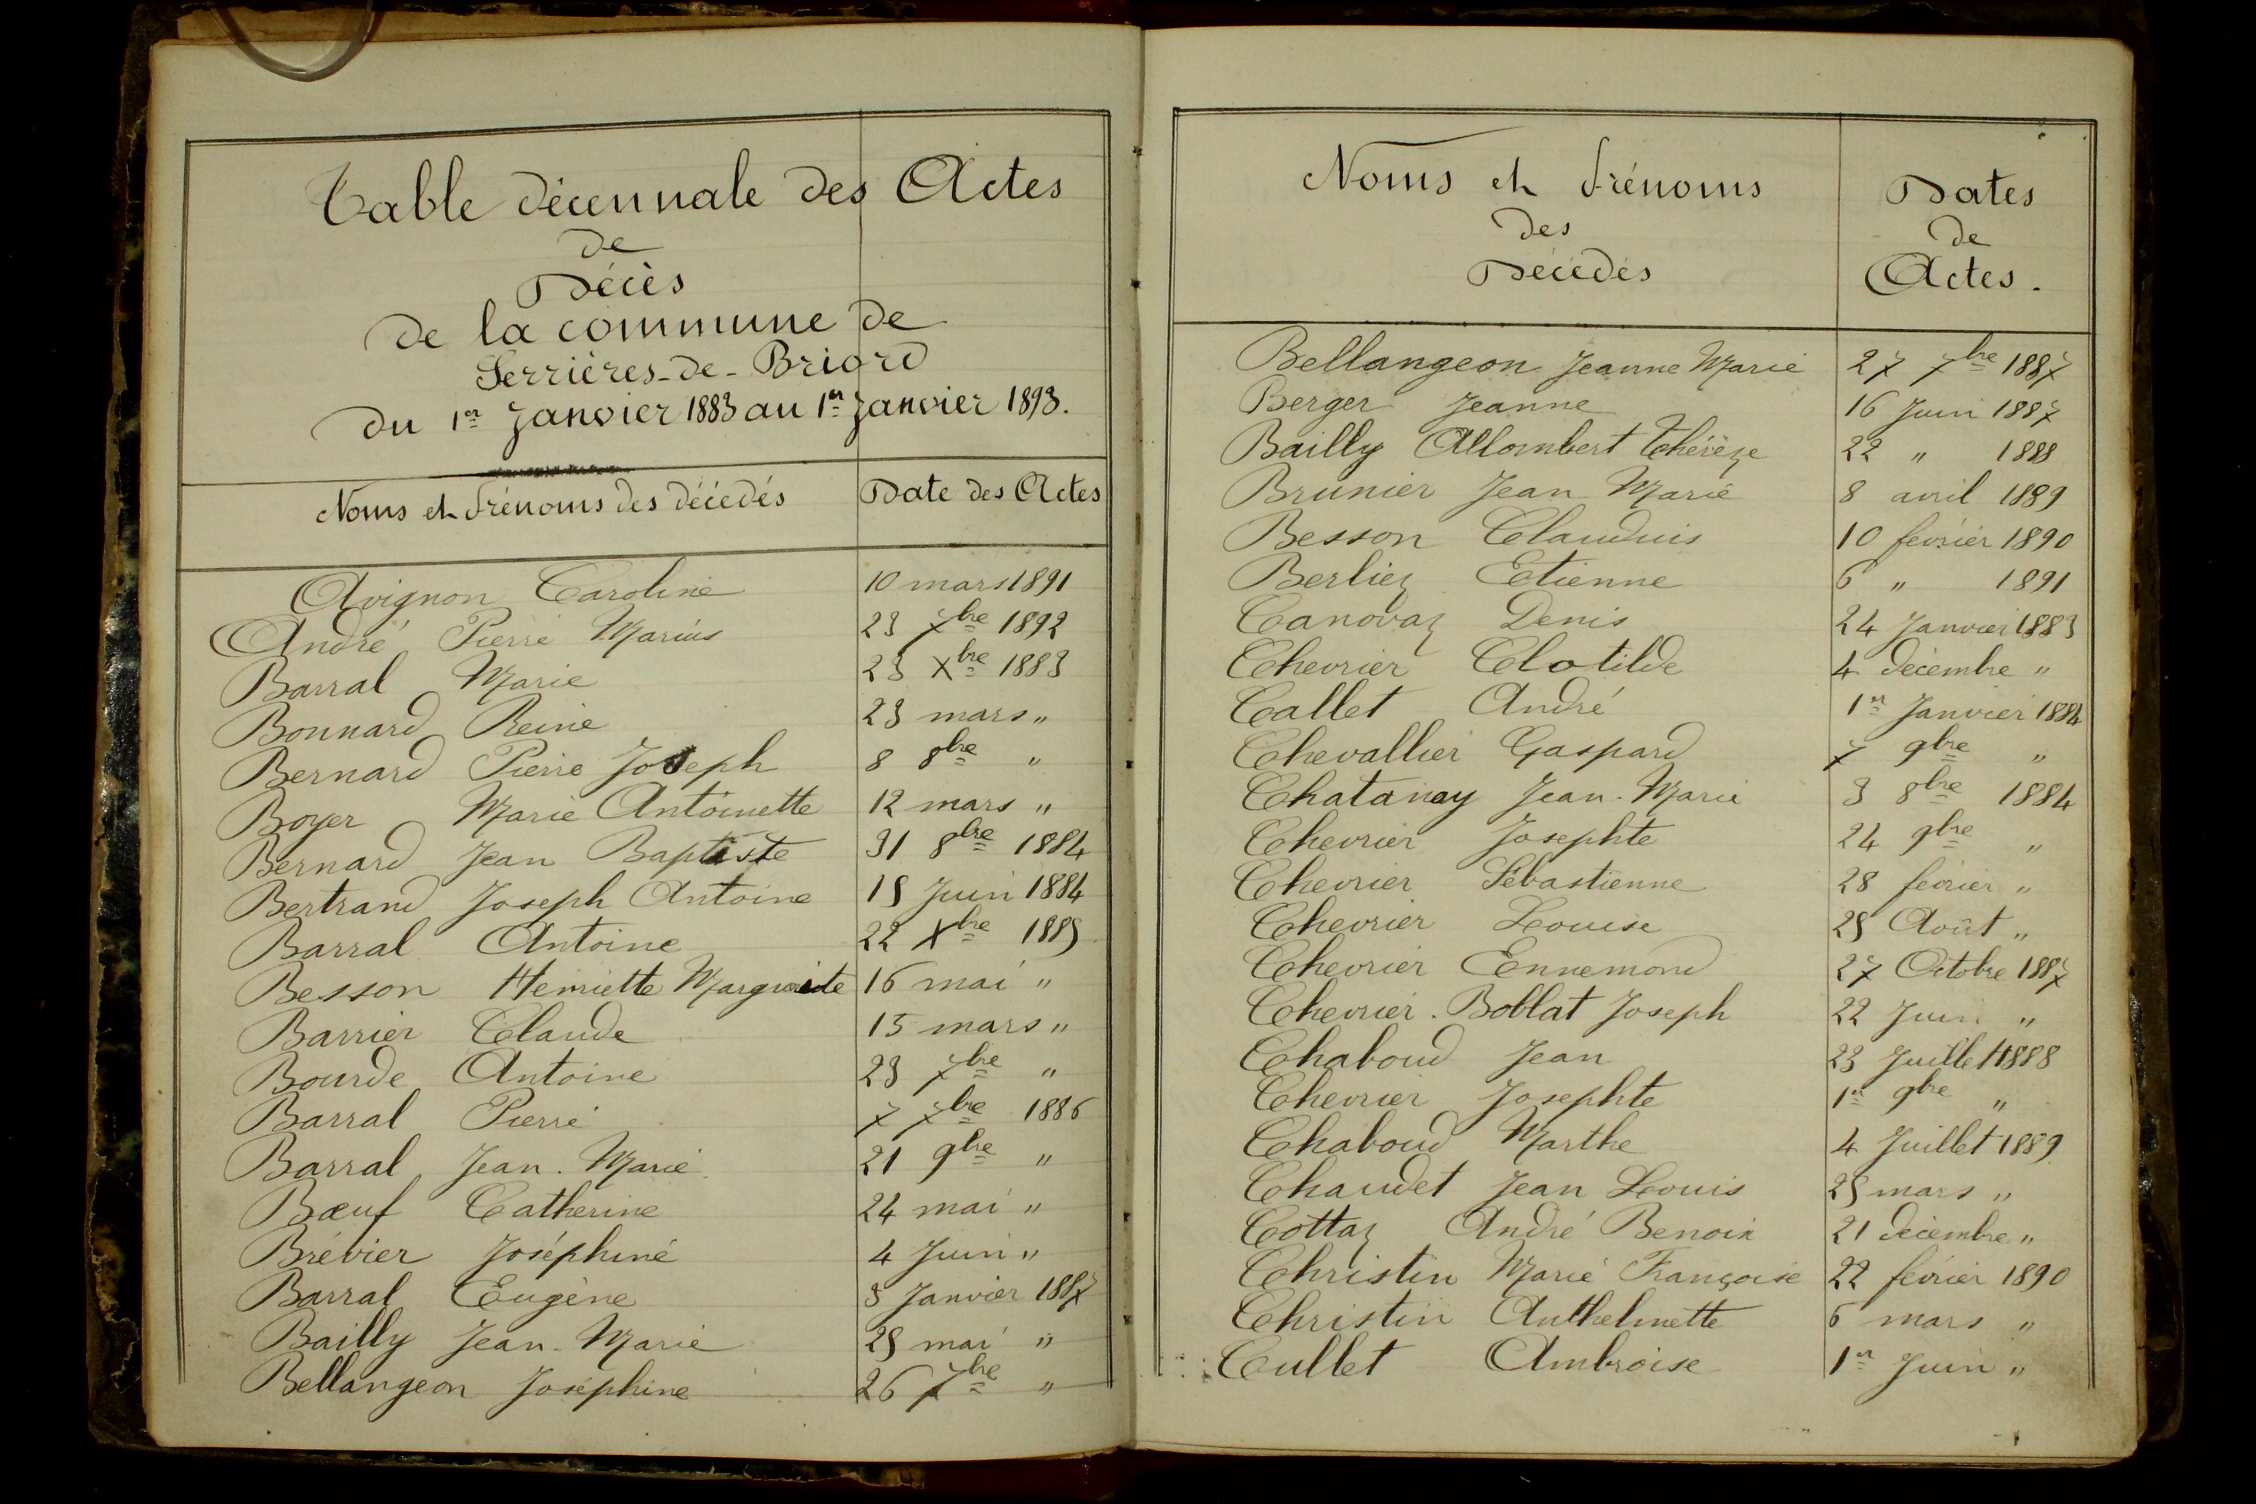 Table décennale des Actes
de
Décès
de la commune de
Serrières-de-Briord
du 1er Janvier 1883 au 1er Janvier 1893.
Noms et Prénoms des décédés Date des Actes
Avignon Caroline 10 mars 1891
André Pierre Marius 23 7bre 1892
Barral Marie 23 Xbre 1883
Bonnard Reine 23 mars "
Bernard Pierre Joseph 8 8bre "
Boyer Marie Antoinette 12 mars "
Bernard Jean Baptiste 31 8bre 1884
Bertrand Joseph Antoine 15 Juin 1884
Barral Antoine 22 Xbre 1885
Besson Henriette Marguerite 16 mai "
Barrier Claude 15 mars "
Bourde Antoine 23 7bre "
Barral Pierre 7 7bre 1886
Barral Jean-Marie 21 9bre "
Bœuf Catherine 24 mai "
Brévier Joséphine 4 Juin "
Barral Eugène 5 Janvier 1887
Bailly Jean-Marie 25 mai "
Bellangeon Joséphine 26 7bre "
Noms et Prénoms Dates
des de
Décédés Actes.
Bellangeon Jeanne Marie 27 7bre 1887
Berger Jeanne 16 Juin 1887
Bailly Allombert Thérèze 22 " 1888
Brunier Jean Marie 8 avril 1889
Besson Claudius 10 février 1890
Berliez Etienne 6 " 1891
Canovaz Denis 24 Janvier 1883
Chevrier Clotilde 4 décembre "
Callet André 1er Janvier 1884
Chevallier Gaspard 7 9bre "
Chatanay Jean-Marie 3 8bre 1884
Chevrier Josephte 24 9bre "
Chevrier Sébastienne 28 février "
Chevrier Louise 25 Août "
Chevrier Ennemond 27 Octobre 1887
Chevrier-Boblat Joseph 22 Juin "
Chaboud Jean 23 Juillet 1888
Chevrier Josephte 1er 9bre "
Chaboud Marthe 4 Juillet 1889
Chaudet Jean Louis 25 mars "
Cottaz André Benoix 21 décembre "
Christin Marie Françoise 22 février 1890
Christin Anthelmette 6 mars "
Cullet Ambroise 1er Juin "